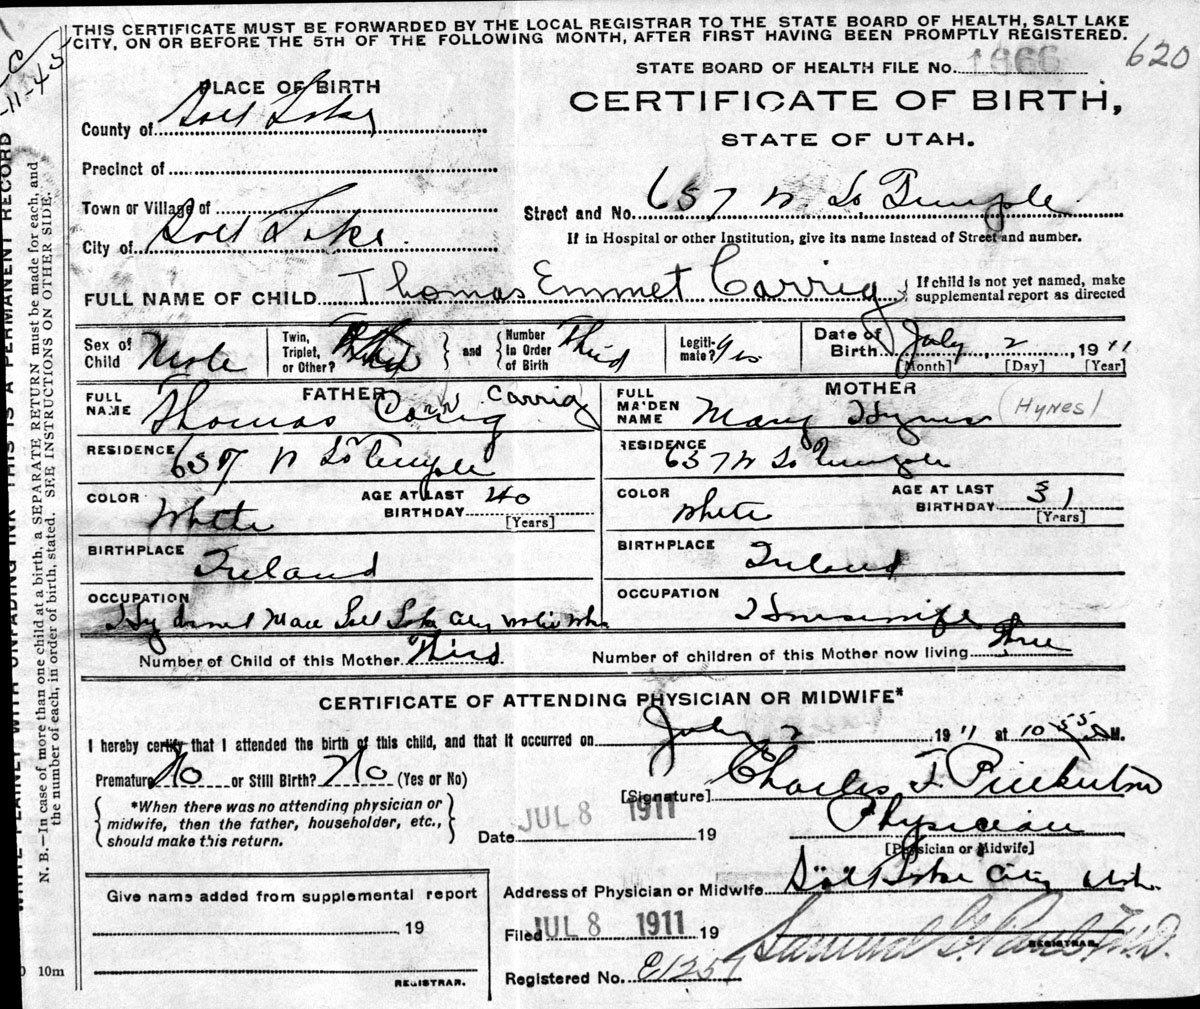 THIS CERTIFICATE MUST BE FORWARDED BY THE LOCAL REGISTRAR TO THE STATE BOARD OF HEALTH, SALT LAKE
CITY, ON OR BEFORE THE 5TH OF THE FOLLOWING MONTH, AFTER FIRST HAVING BEEN PROMPTLY REGISTERED.
620
STATE BOARD OF HEALTH FILE No. 1966
PLACE OF BIRTH
CERTIFICATE OF BIRTH,
STATE OF UTAH.
County of Salt Lake
Precinct of
Town or Village of
City of Salt Lake
Street and No. 657 W. So Temple
If in Hospital or other Institution, give its name instead of Street and number.
FULL NAME OF CHILD Thomas Emmet Carrig
If child is not yet named, make
supplemental report as directed
Sex of Child Male
Twin, Triplet, or Other?
and
Number in Order of Birth Third
Legitimate? Yes
Date of Birth July 2, 1911
[Month] [Day] [Year]
FATHER
FULL NAME Thomas Carrig
MOTHER
FULL MAIDEN NAME Mary Hynes (HYNES)
RESIDENCE 657 W So Temple
RESIDENCE 657 W So Temple
COLOR White
AGE AT LAST BIRTHDAY 40 [Years]
COLOR White
AGE AT LAST BIRTHDAY 31 [Years]
BIRTHPLACE Ireland
BIRTHPLACE Ireland
OCCUPATION Salt Lake City
OCCUPATION Housewife
Number of Child of this Mother Third
Number of children of this Mother now living Three
CERTIFICATE OF ATTENDING PHYSICIAN OR MIDWIFE*
I hereby certify that I attended the birth of this child, and that it occurred on July 2 1911 at 10 55 M.
Premature No or Still Birth? No (Yes or No)
*When there was no attending physician or
midwife, then the father, householder, etc.,
should make this return.
[Signature] Charles F. Pinkerton
Date JUL 8 1911 19
Physician
[Physician or Midwife]
Address of Physician or Midwife Salt Lake City Utah
Give name added from supplemental report
19
REGISTRAR.
Filed JUL 8 1911 19
Samuel G. Paul M.D.
REGISTRAR.
Registered No. 1257
WRITE PLAINLY WITH UNFADING INK THIS IS A PERMANENT RECORD
N. B.—In case of more than one child at a birth, a SEPARATE RETURN must be made for each, and
the number of each, in order of birth, stated. SEE INSTRUCTIONS ON OTHER SIDE.
10m